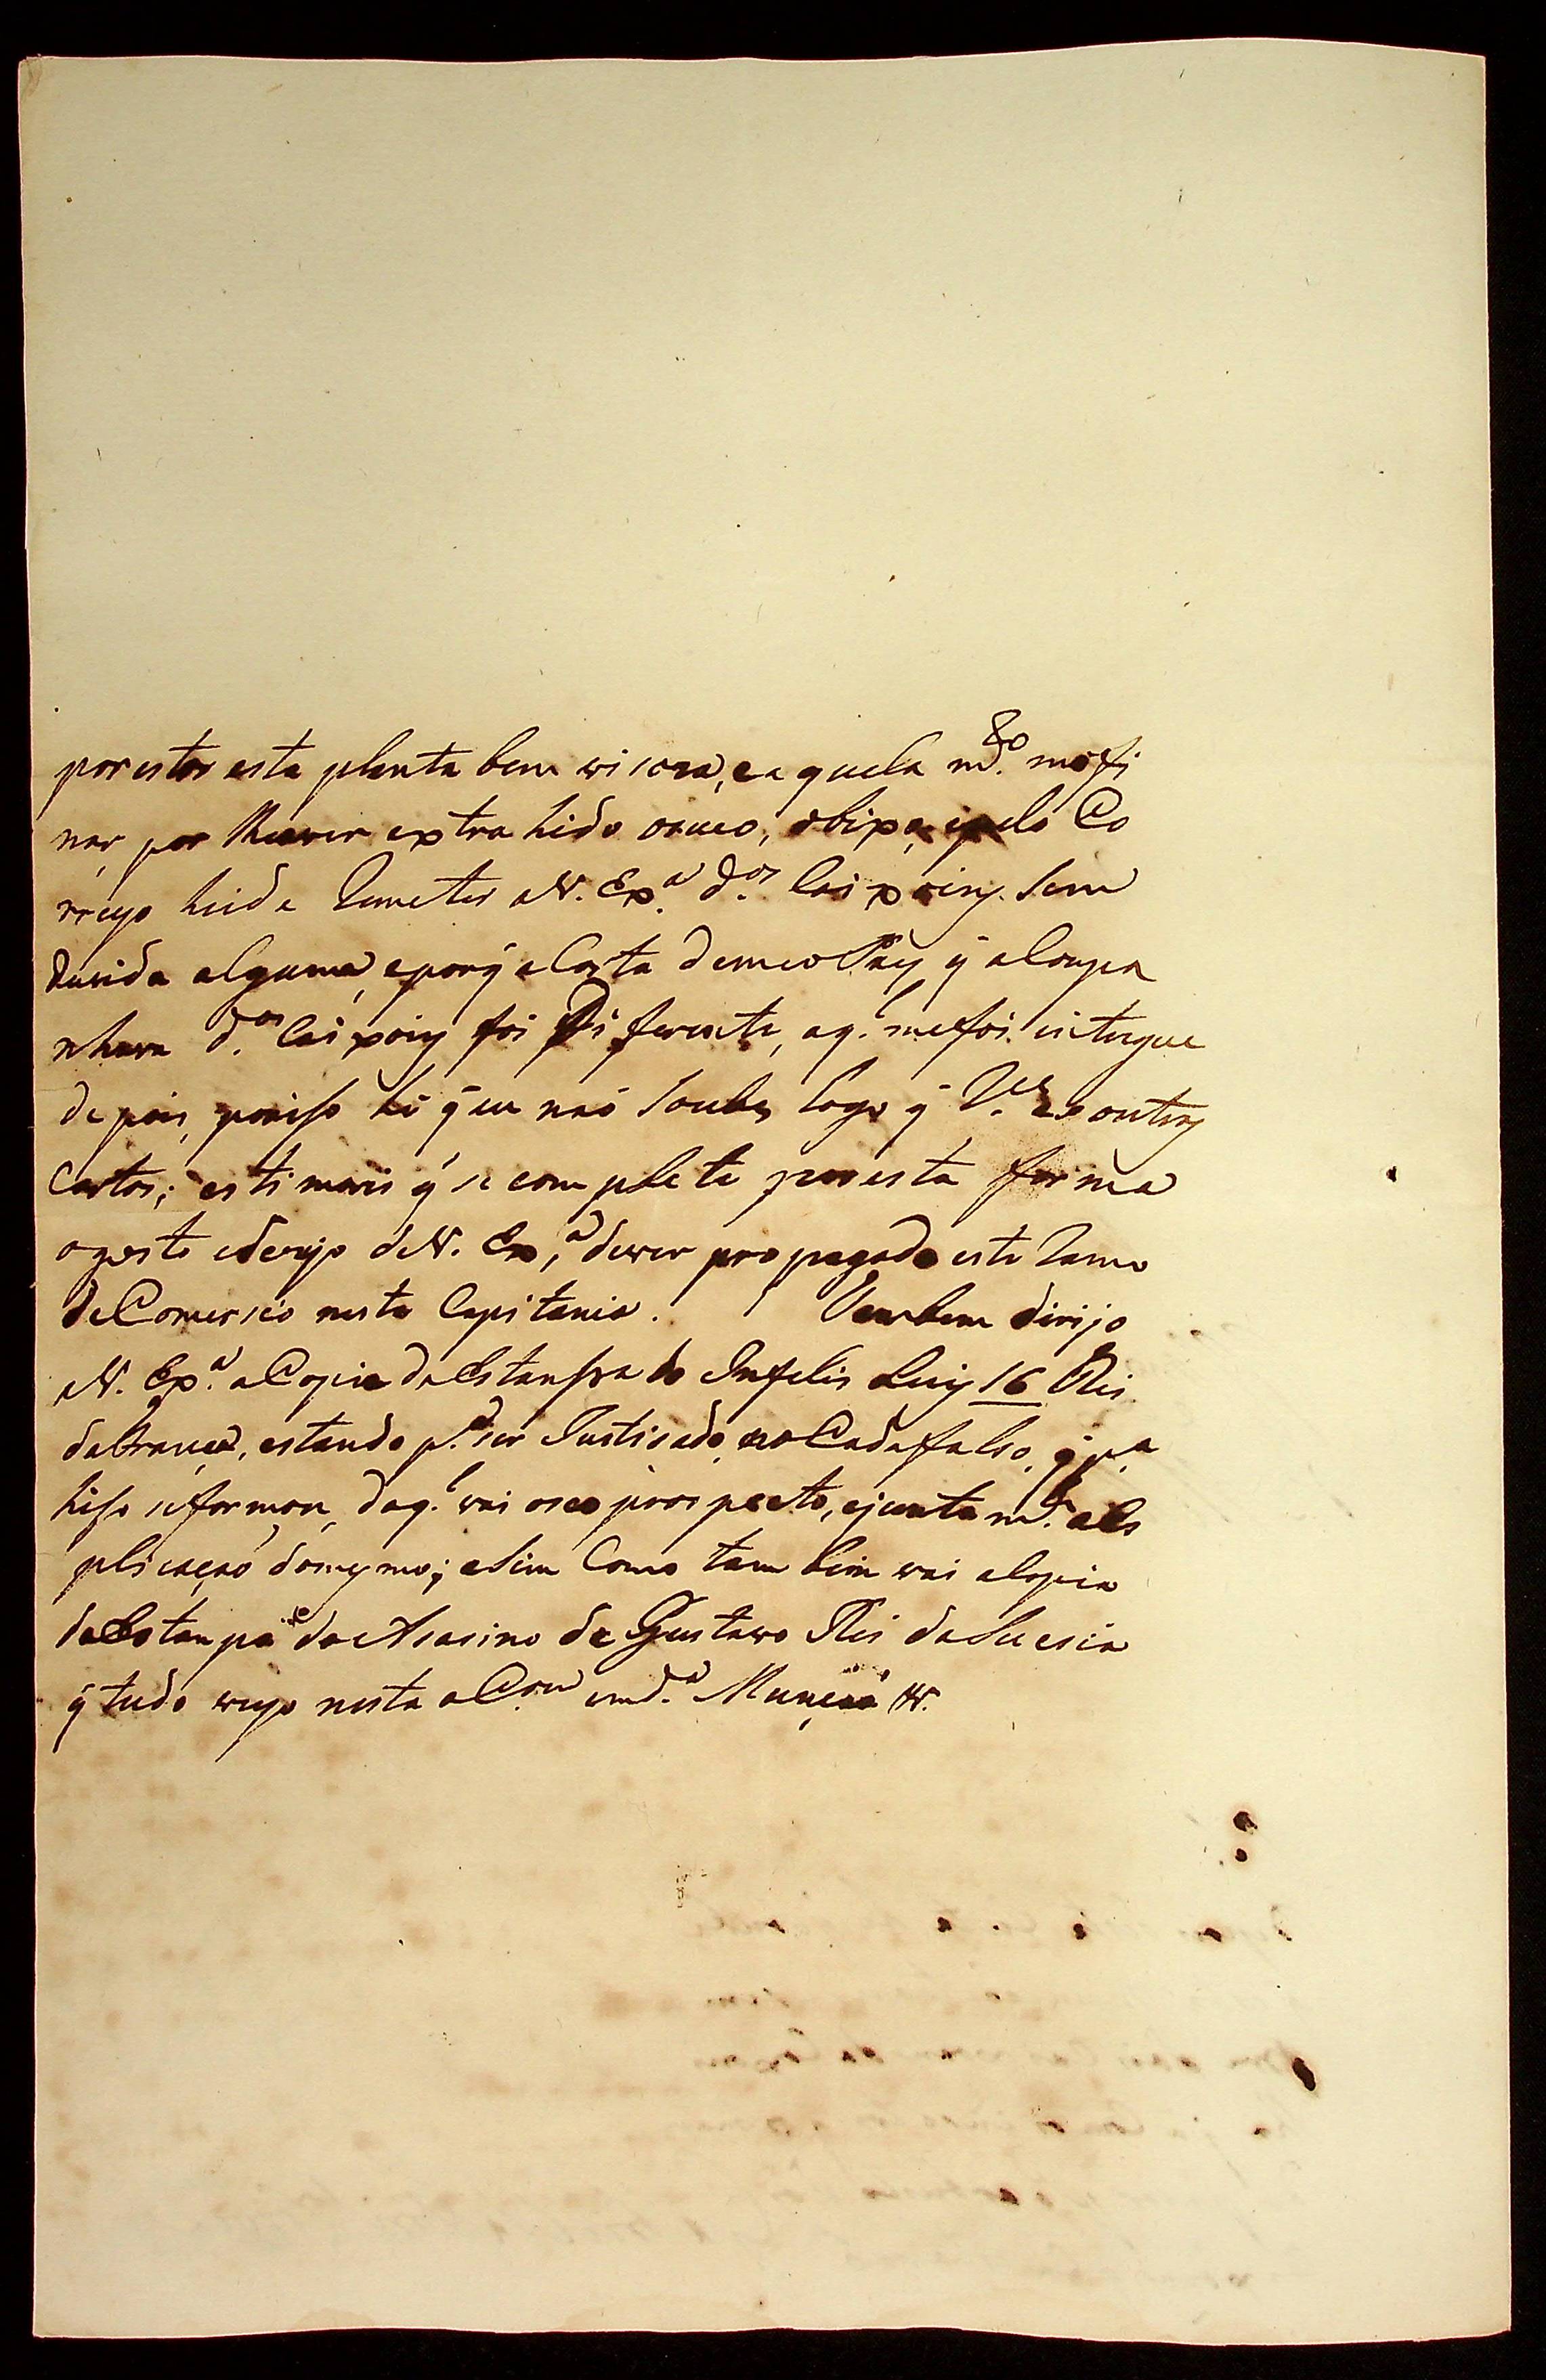 por estar esta planta bem wisoza, ea quela m.to mofi
nar, por lheaver extrahido osuco, obixo, epelo Co
rreyo heide Remeter aV. Ex.a d.os Caixoiny. Sem
duvida alguma, eporq̃ a Carta demeo Pay q̃ a Conpa
nhava d.os Caixoiny foi Diferente, aq.l mefoi intregue
depois, porifso hé q̃ eu naó Soube Logo q̃ as outras
Cartas; estimarei q̃ se complete por esta forma
ogosto edezejo deV. Ex,a dever propagado este Ramo
deComersio nesta Capitania. Tambem dirijo
aV. Ex.a aCopia daEstanpa do Infelis Luiy 16 Reis
daFrança, estando p.a ser Justisado, no Cadafalso, q̃ p.a
hifso seformou, daq.l vai oseo prospecto, ejunta m.te aEs
plicaçaó domeymo; aSim Como tambem vai aCopia
daEstanpa do Asasino de Gustavo Reis daSuesia
q̃ tudo veyo nesta